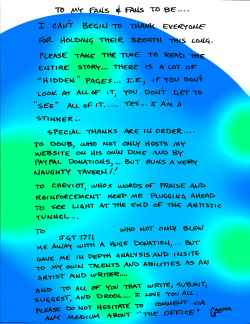 TO MY FANS & FANS TO BE....
I CAN'T BEGIN TO THANK EVERYONE
FOR HOLDING THEIR BREATH THIS LONG.
PLEASE TAKE THE TIME TO READ THE
ENTIRE STORY... THERE IS A LOT OF
"HIDDEN" PAGES... I.E., IF YOU DON'T
LOOK AT ALL OF IT, YOU DON'T GET TO
"SEE" ALL OF IT..... YES... I AM A
STINKER..
SPECIAL THANKS ARE IN ORDER....
TO DOUB, WHO NOT ONLY HOSTS MY
WEBSITE ON HIS OWN DIME AND BY
PAYPAL DONATIONS, .. BUT RUNS A VERY
NAUGHTY TAVERN!!
TO CHEVIOT, WHO'S WORDS OF PRAISE AND
REINFORCEMENT KEEP ME PLUGGING AHEAD
TO SEE LIGHT AT THE END OF THE ARTISTIC
TUNNEL...
TO JGT1771 WHO NOT ONLY BLEW
ME AWAY WITH A HUGE DONATION, .. BUT
GAVE ME IN DEPTH ANALYSIS AND INSITE
TO MY OWN TALENTS AND ABILITIES AS AN
ARTIST AND WRITER...
AND TO ALL OF YOU THAT WRITE, SUBMIT,
SUGGEST, AND DROOL... I LOVE YOU ALL.
PLEASE DO NOT HESITATE TO COMMENT VIA
ANY MEDIUM ABOUT "THE OFFICE"